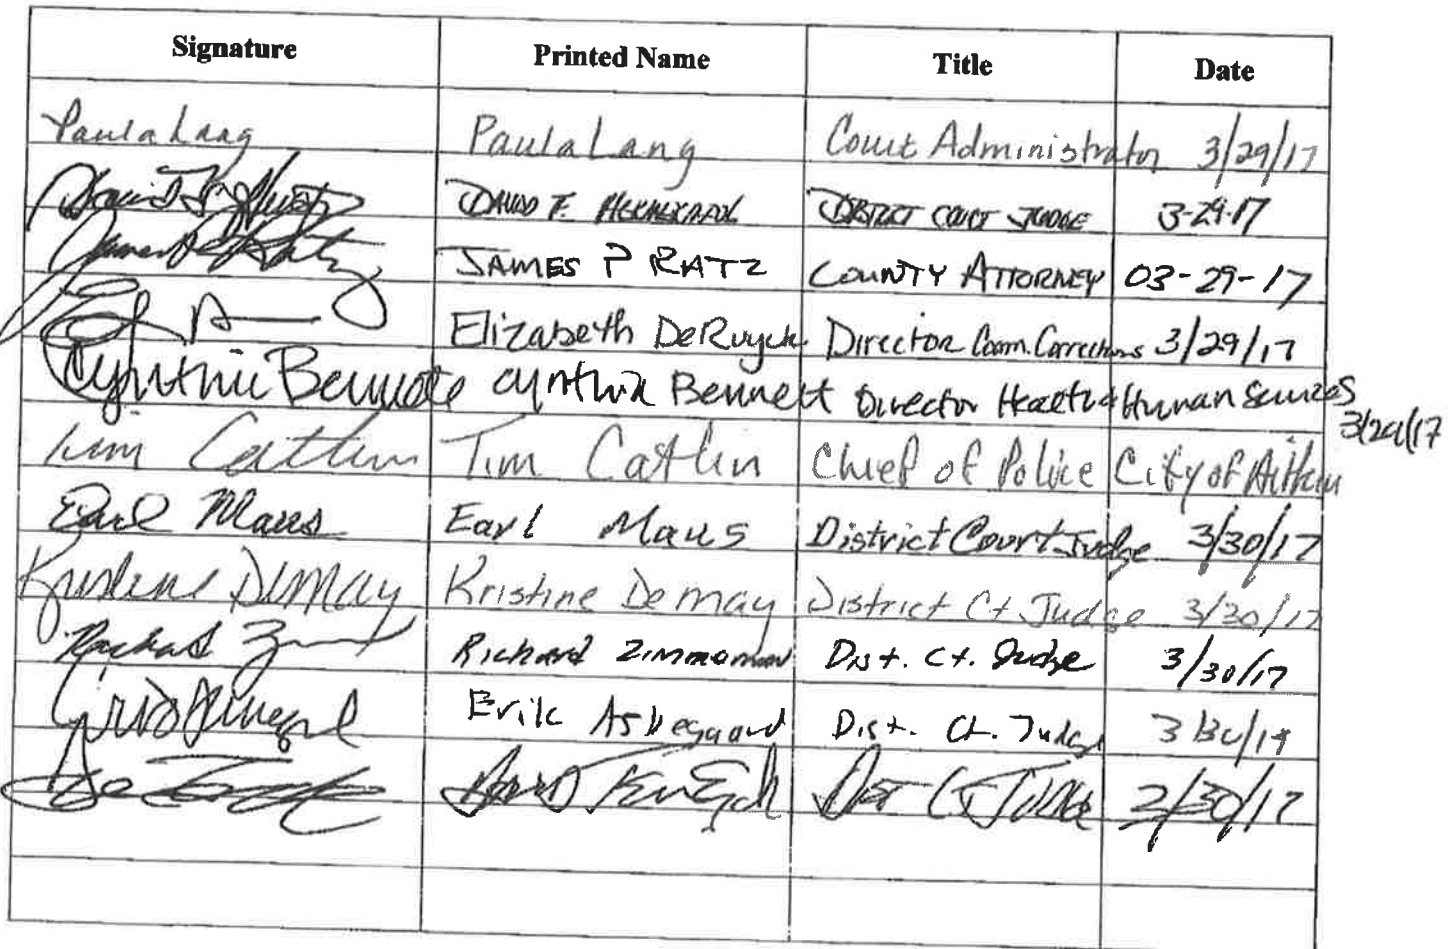 Signature Printed Name Title Date
Paula Lang Paula Lang Court Administrator 3/29/17
DAVID F. DISTRICT COURT JUDGE 3-29-17
James P Ratz JAMES P RATZ COUNTY ATTORNEY 03-29-17
Elizabeth DeRuyck Director Comm. Corrections 3/29/17
Cynthia Bennett Cynthia Bennett Director Health & Human Services
3/29/17
Tim Catlin Tim Catlin Chief of Police City of Aitkin
Earl Maus Earl Maus District Court Judge 3/30/17
Kristine DeMay Kristine DeMay District Ct Judge 3/30/17
Richard Zimmerman Dist. Ct. Judge 3/30/17
Erik Askegaard Dist. Ct. Judge 3/30/17
Dist Ct Judge 3/30/17